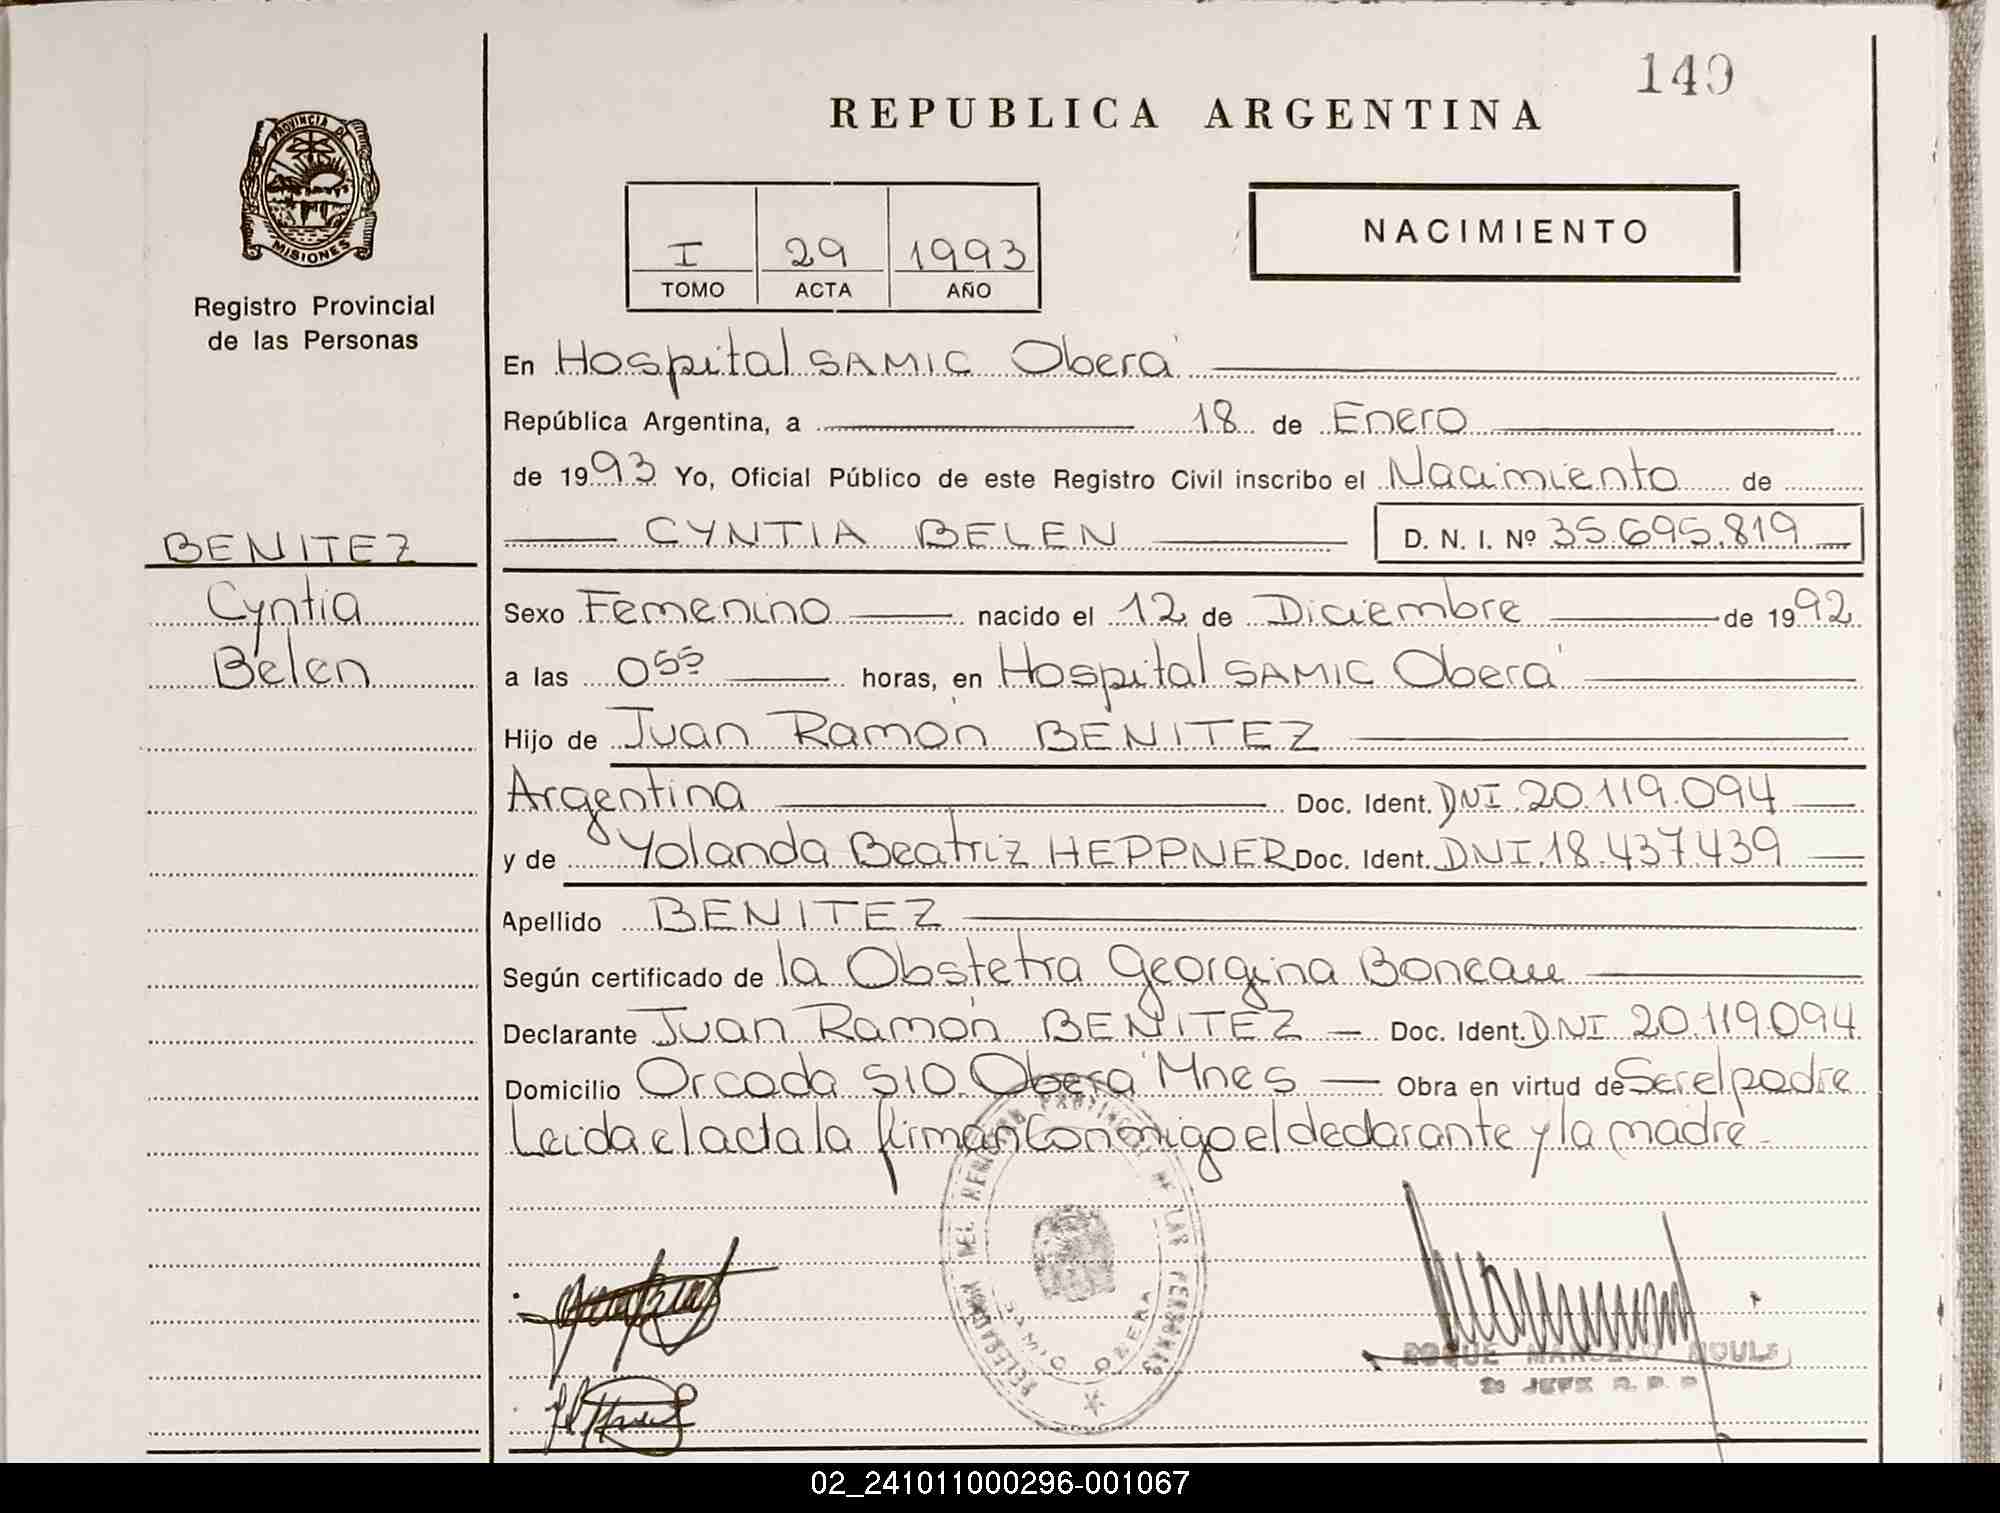 149
REPUBLICA ARGENTINA
PROVINCIA DE
MISIONES
Registro Provincial
de las Personas
NACIMIENTO
I 29 1993
TOMO ACTA AÑO
En Hospital SAMIC Oberá
República Argentina, a 18 de Enero
de 1993 Yo, Oficial Público de este Registro Civil inscribo el Nacimiento de
CYNTIA BELEN D. N. I. Nº 35.695.819
BENITEZ
Cyntia
Belen
Sexo Femenino nacido el 12 de Diciembre de 1992
a las 0⁵⁵ horas, en Hospital SAMIC Oberá
Hijo de Juan Ramón BENITEZ
Argentina Doc. Ident. DNI 20.119.094
y de Yolanda Beatriz HEPPNER Doc. Ident. DNI 18.437.439
Apellido BENITEZ
Según certificado de la Obstetra Georgina Boneau
Declarante Juan Ramón BENITEZ Doc. Ident. DNI 20.119.094
Domicilio Orcada 510. Oberá Mnes Obra en virtud de Ser el padre
Leida el acta la firman Conmigo el declarante y la madre
DE LAS PERSONAS
OBERA
ROQUE
2º JEFE R. P. P.
02_241011000296-001067